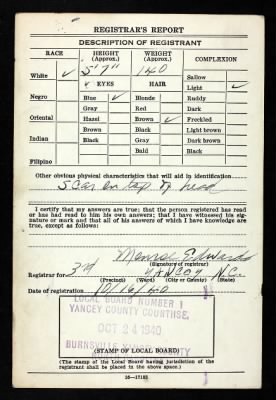 REGISTRAR'S REPORT
DESCRIPTION OF REGISTRANT
RACE HEIGHT (Approx.) WEIGHT (Approx.) COMPLEXION
White ✓ 5'7" 140 Sallow
✓ EYES HAIR Light ✓
Negro Blue ✓ Blonde Ruddy
Gray Red Dark
Oriental Hazel Brown ✓ Freckled
Brown Black Light brown
Indian Black Gray Dark brown
Bald Black
Filipino
Other obvious physical characteristics that will aid in identification
Scar on top of head
I certify that my answers are true; that the person registered has read or has had read to him his own answers; that I have witnessed his signature or mark and that all of his answers of which I have knowledge are true, except as follows:
Monroe Edwards
(Signature of registrar)
Registrar for 3rd YANCEY N.C.
(Precinct) (Ward) (City or County) (State)
Date of registration 10/16/40
LOCAL BOARD NUMBER 1
YANCEY COUNTY COURTHSE,
OCT 24 1940
BURNSVILLE
(STAMP OF LOCAL BOARD)
(The stamp of the Local Board having jurisdiction of the registrant shall be placed in the above space.)
16—17105